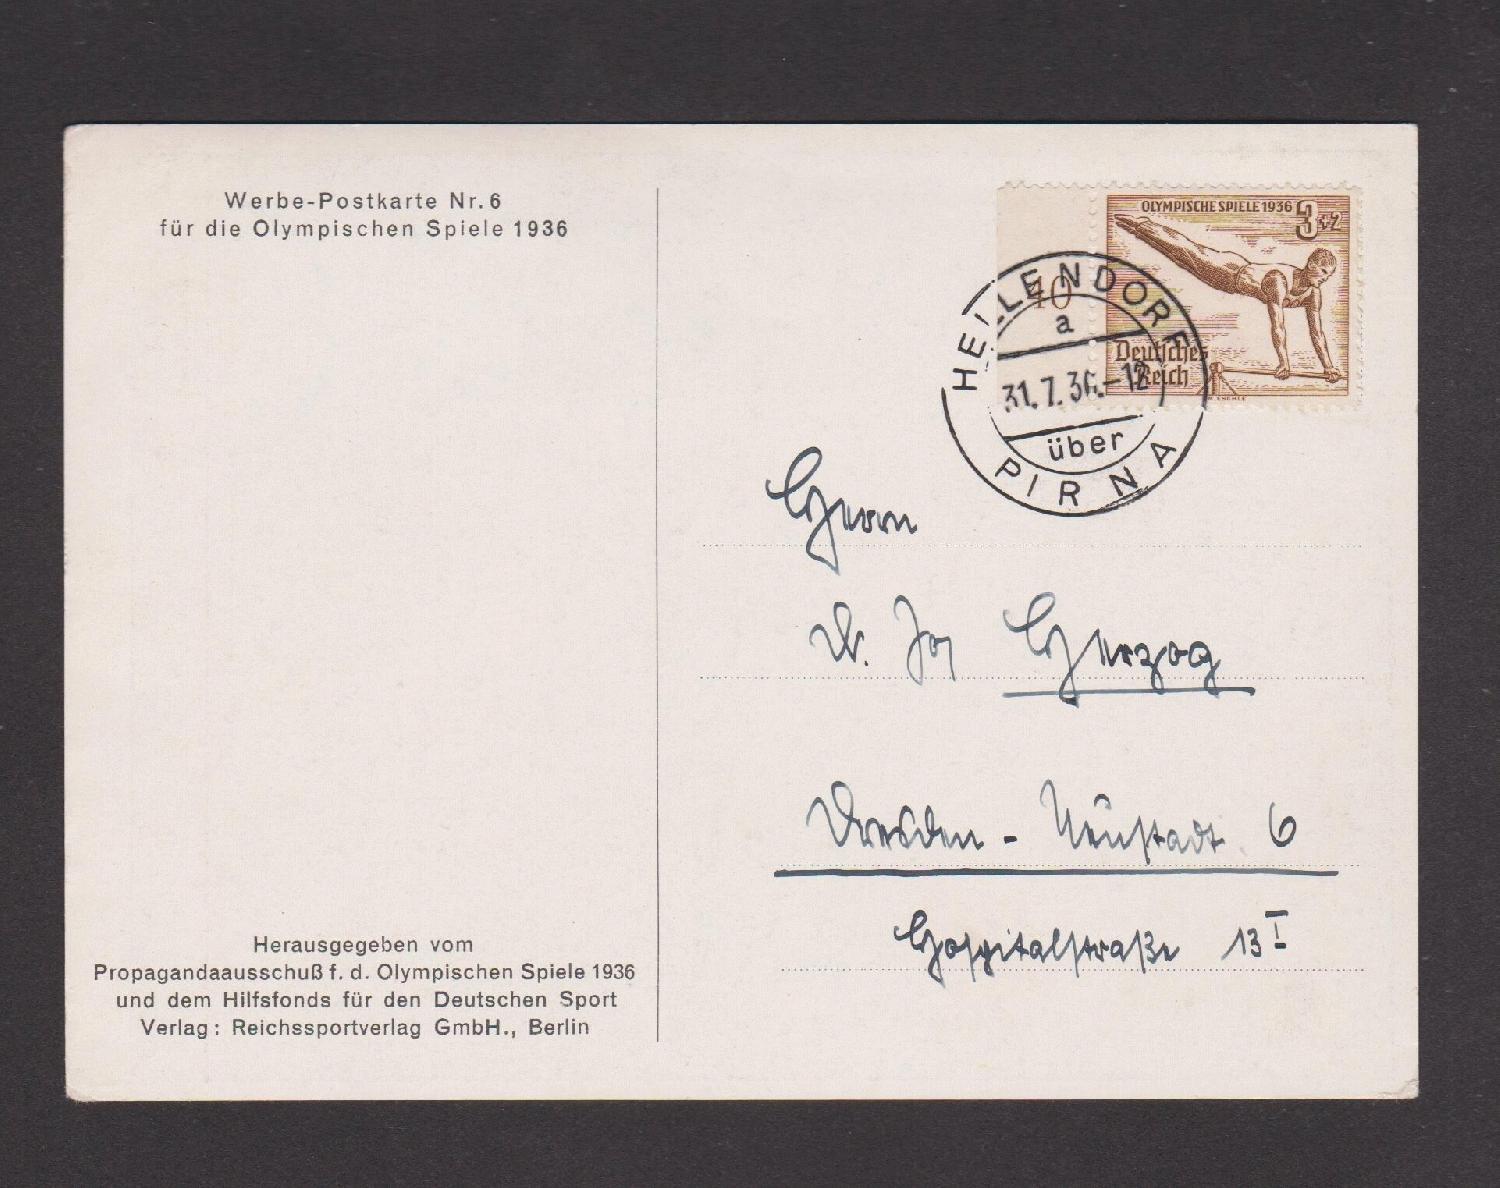 Werbe-Postkarte Nr. 6
für die Olympischen Spiele 1936
OLYMPISCHE SPIELE 1936 3+2
Deutsches
Reich
40
HELLENDORF
a
31.7.36.-12
über
PIRNA
Herrn
Dr. Jos Herzog
Dresden - Neustadt 6
Hospitalstraße 13 I
Herausgegeben vom
Propagandaausschuß f. d. Olympischen Spiele 1936
und dem Hilfsfonds für den Deutschen Sport
Verlag: Reichssportverlag GmbH., Berlin